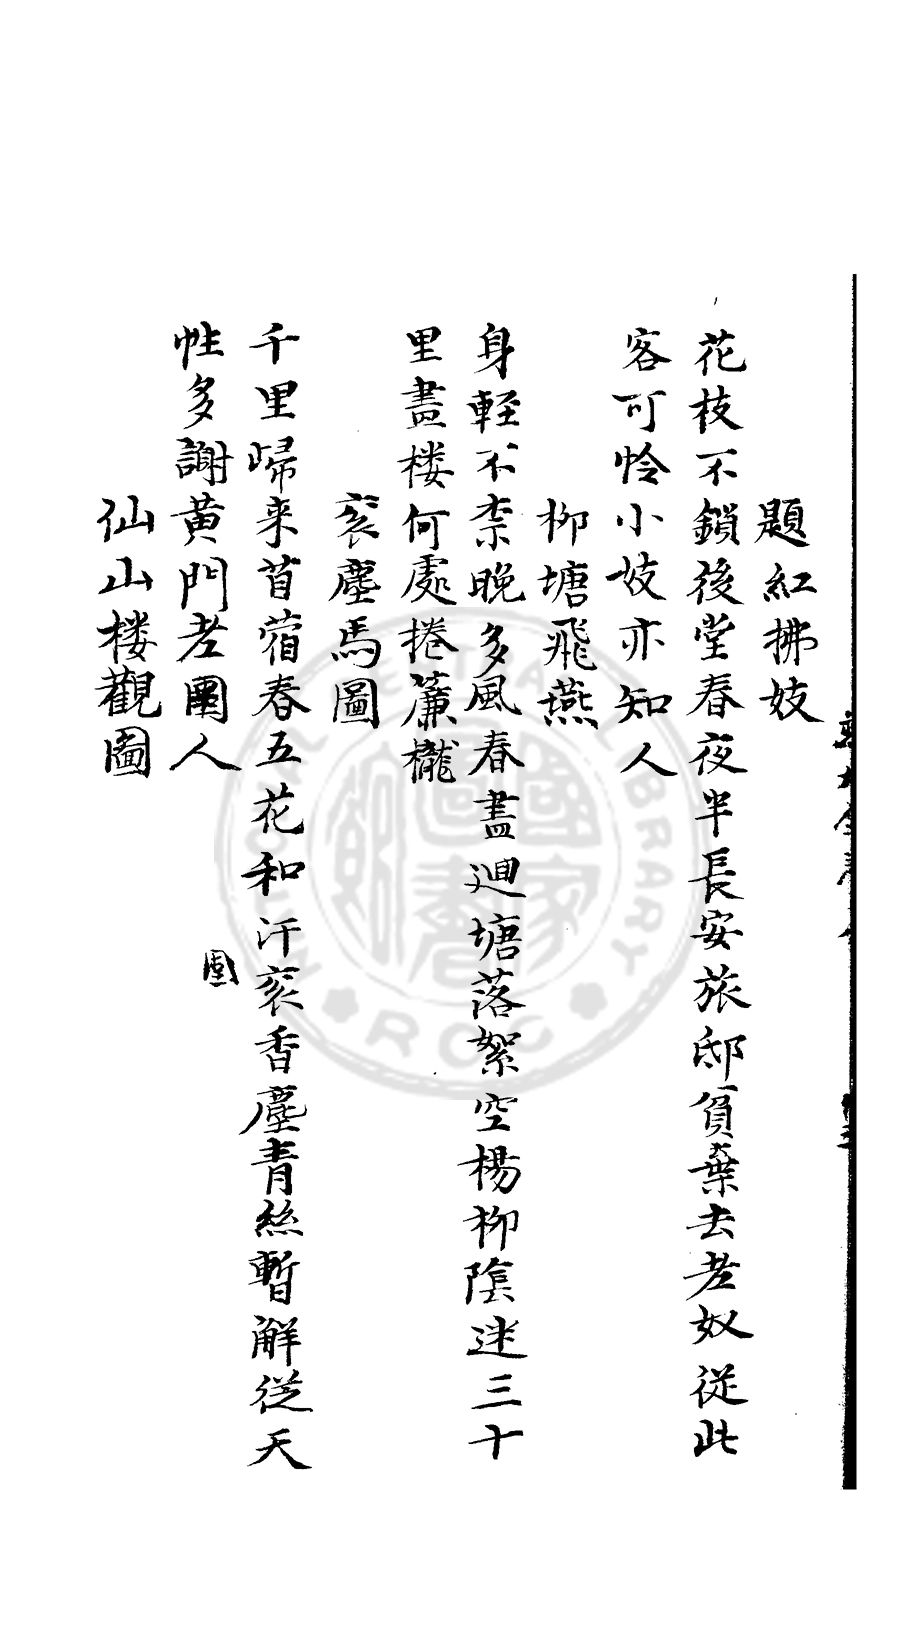 題紅拂妓
花枝不鎖後堂春夜半長安旅邸貧棄去老奴從此
客可怜小妓亦知人
柳塘飛燕
身輕不柰晚多風春盡迴塘落絮空楊柳陰迷三十
里畫楼何處捲簾櫳
衮塵馬圖
千里歸来苜蓿春五花和汗衮香塵青絲暫解從天
性多謝黄門老圉人
圉
仙山楼觀圖
國家圖書館
NATIONAL CENTRAL LIBRARY
TAIWAN ROC